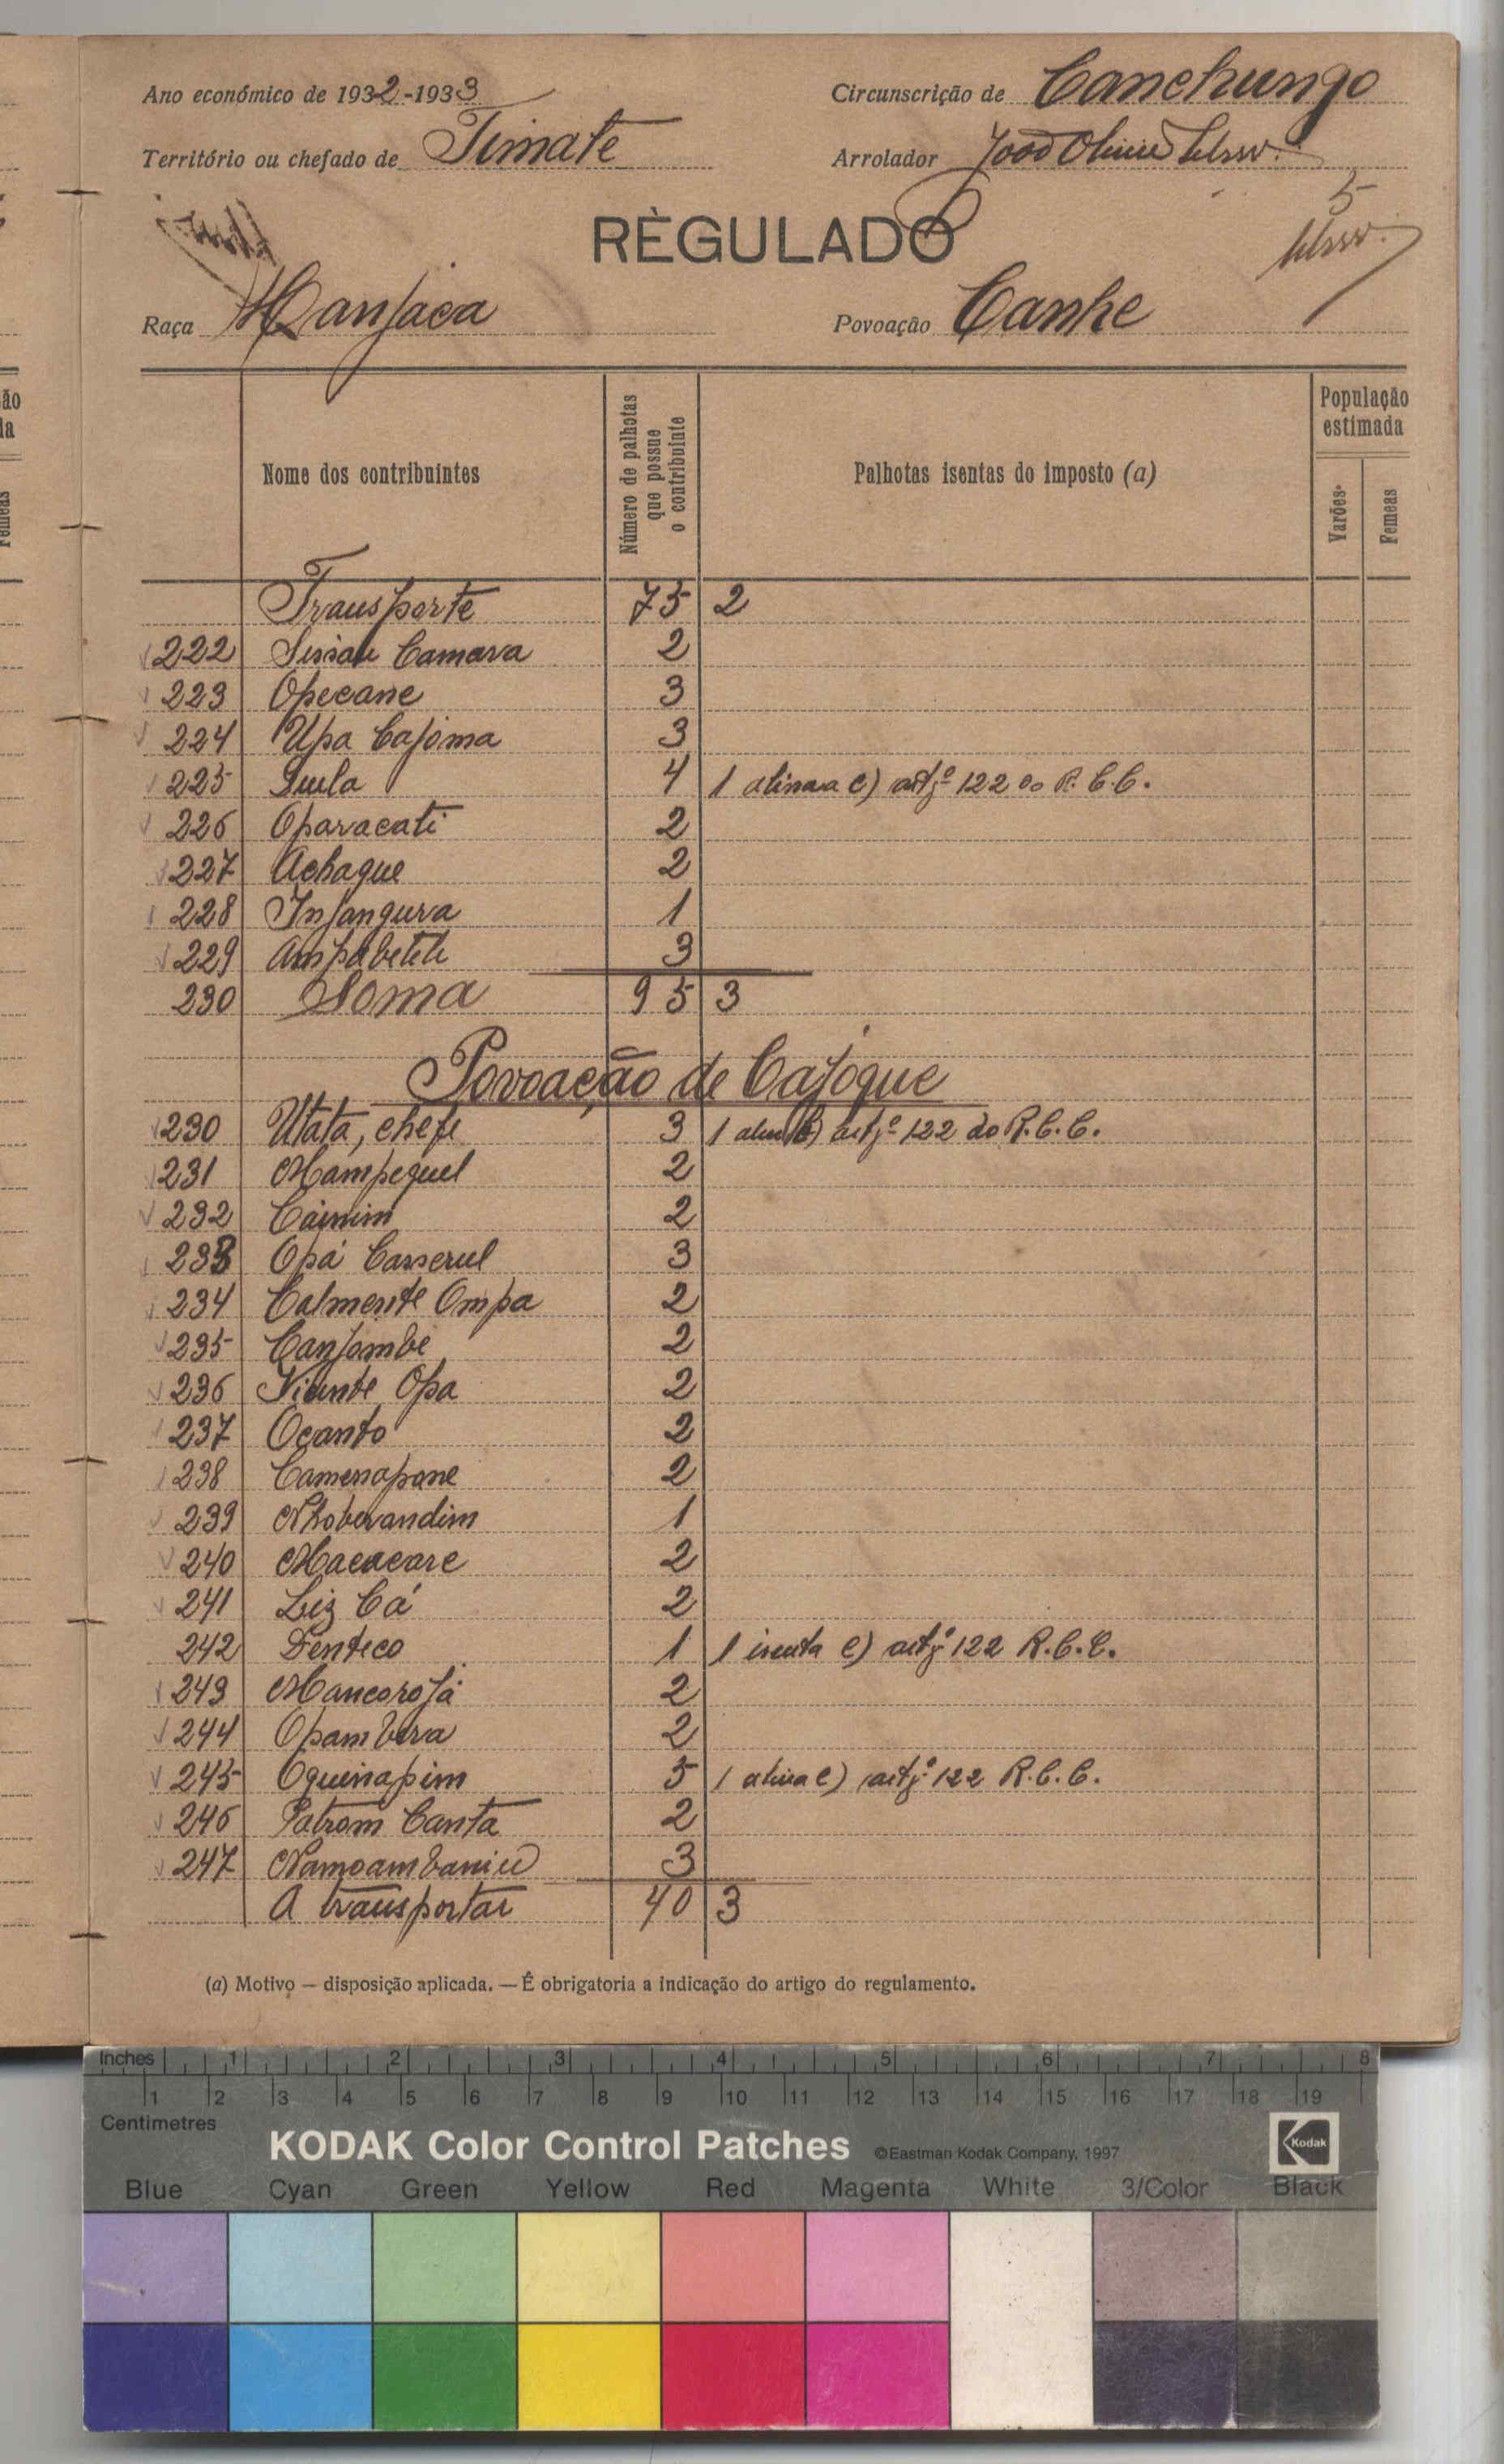 Ano económico de 1932-1933
Circunscrição de Canchungo
Território ou chefado de Timate
Arrolador João
RÈGULADO
5
Raça Manjaca
Povoação Canhe
Nome dos contribuintes
Número de palhotas que possue o contribuinte
Palhotas isentas do imposto (a)
População estimada
Varões
Femeas
Transporte 75 2
222 Camara 2
223 Opecane 3
224 Upa Cajoma 3
225 4 1 alinea e) artgº 122 do R.C.C.
226 Oparacati 2
227 Achaque 2
228 Injangura 1
229 3
230 Soma 95 3
Povoação de Cajogue
230 Utata, chefe 3 1 artgº 122 do R.C.C.
231 Mampequel 2
232 Cainim 2
233 Opá Casserul 3
234 Calmente Ompa 2
235 Canjambe 2
236 Vicente Opa 2
237 Ocanto 2
238 Camenapone 2
239 Nhoberandim 1
240 Macacare 2
241 Liz Cá 2
242 Denteco 1 1 isenta e) artgº 122 R.C.C.
243 Mancorojá 2
244 Opambera 2
245 Oquinapim 5 1 alinea e) artgº 122 R.C.C.
246 Patrom Canta 2
247 3
A transportar 40 3
(a) Motivo — disposição aplicada. — É obrigatoria a indicação do artigo do regulamento.
Inches 1 2 3 4 5 6 7 8
1 2 3 4 5 6 7 8 9 10 11 12 13 14 15 16 17 18 19
Centimetres
KODAK Color Control Patches ©Eastman Kodak Company, 1997 Kodak
Blue Cyan Green Yellow Red Magenta White 3/Color Black